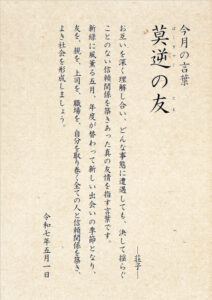 今月の言葉
莫逆の友
ばくぎゃく とも
―荘子―
お互いを深く理解し合い、どんな事態に遭遇しても、決して揺らぐ
ことのない信頼関係を築きあった真の友情を指す言葉です。
新緑に風薫る五月、年度が替わって新しい出会いの季節となり、
友を、親を、上司を、職場を、自分を取り巻く全ての人と信頼関係を築き、
よき社会を形成しましょう。
令和七年五月一日